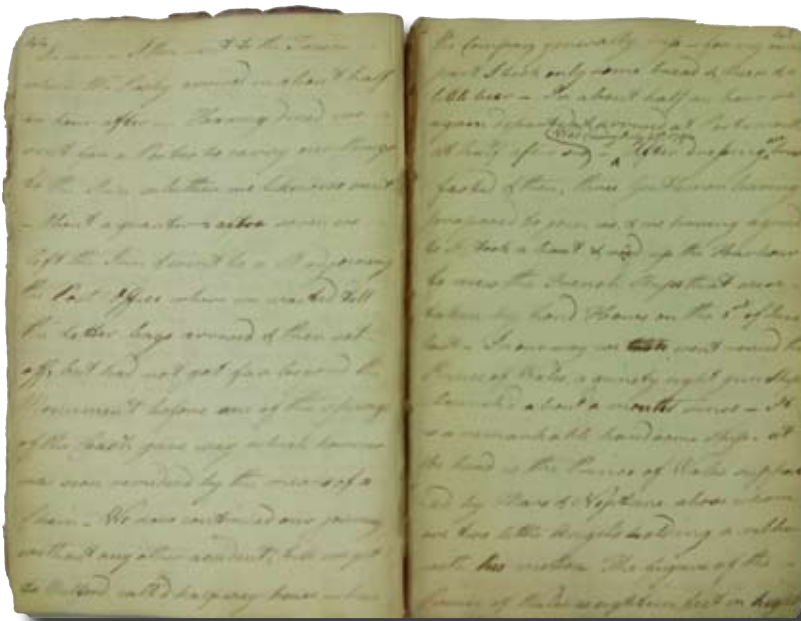 I then went to the Tower
where the Party arrived in about half
an hour after - Having dined we
sent for a Porter to carry our things
to the Inn whither we likewise went
- About a quarter seven we
left the Inn & went to a adjoining
the Post Office where we waited till
the Letter bags arrived & then set
off, but had not got far beyond the
Monument before one of the springs
of the Coach gave way which however
was soon remedied by the means of a
Chain - We now continued our journey
without any other accident, till we got
to called house where
the Company generally sup - for my own
part I took only some bread & cheese & a
little beer - In about half an hour we
again & arrived at Portsmouth
at half after - After
& then, three Gentlemen having
proposed to join us, & we having agreed
to it took a boat & went up the Harbour
to view the French Ships that were
taken by Lord Howe on the 1st of June
last - In our way we went round the
Prince of Wales, a ninety eight gun Ship
launched about a month since - It
is a remarkable handsome Ship, at
the head is the Prince of Wales suppor
ted by Mars & Neptune above whom
are two little Angels holding a ribbon
with his motto The figure of the
Prince of Wales is eighteen feet in height